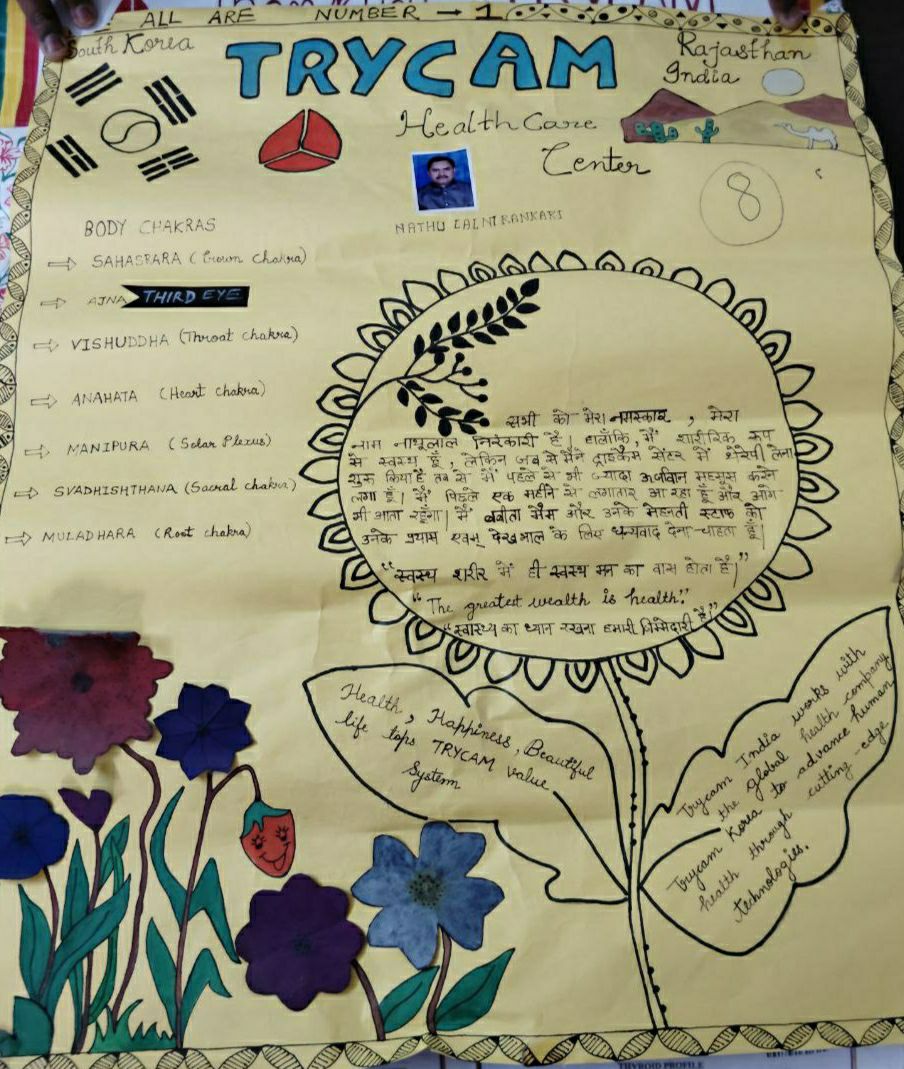 ALL ARE NUMBER → 1
South Korea
TRYCAM
Rajasthan
India
Health Care
Center
8
NATHU LAL NIRANKARI
BODY CHAKRAS
⇨ SAHASRARA (Crown Chakra)
⇨ AJNA THIRD EYE
⇨ VISHUDDHA (Throat chakra)
⇨ ANAHATA (Heart chakra)
⇨ MANIPURA (Solar Plexus)
⇨ SVADHISHTHANA (Sacral chakra)
⇨ MULADHARA (Root chakra)
सभी को मेरा नमस्कार, मेरा
नाम नाथूलाल निरंकारी है। हालाँकि, मैं शारीरिक रूप
से स्वस्थ हूँ, लेकिन जब से मैंने ट्राइकैम सेंटर में थैरेपी लेना
शुरू किया है तब से मैं पहले से भी ज्यादा ऊर्जावान महसूस करने
लगा हूँ। मैं पिछले एक महीने से लगातार आ रहा हूँ और आगे
भी आता रहूँगा। मैं बबीता मैम और उनके मेहनती स्टाफ को
उनके प्रयास एवम् देखभाल के लिए धन्यवाद देना चाहता हूँ।
"स्वस्थ शरीर में ही स्वस्थ मन का वास होता है।"
"The greatest wealth is health"
"स्वास्थ्य का ध्यान रखना हमारी जिम्मेदारी है!"
Health, Happiness, Beautiful
life tops TRYCAM value
System
Trycam India works with
the global health company
Trycam Korea to advance human
health through cutting-edge
technologies.
THYROID PROFILE